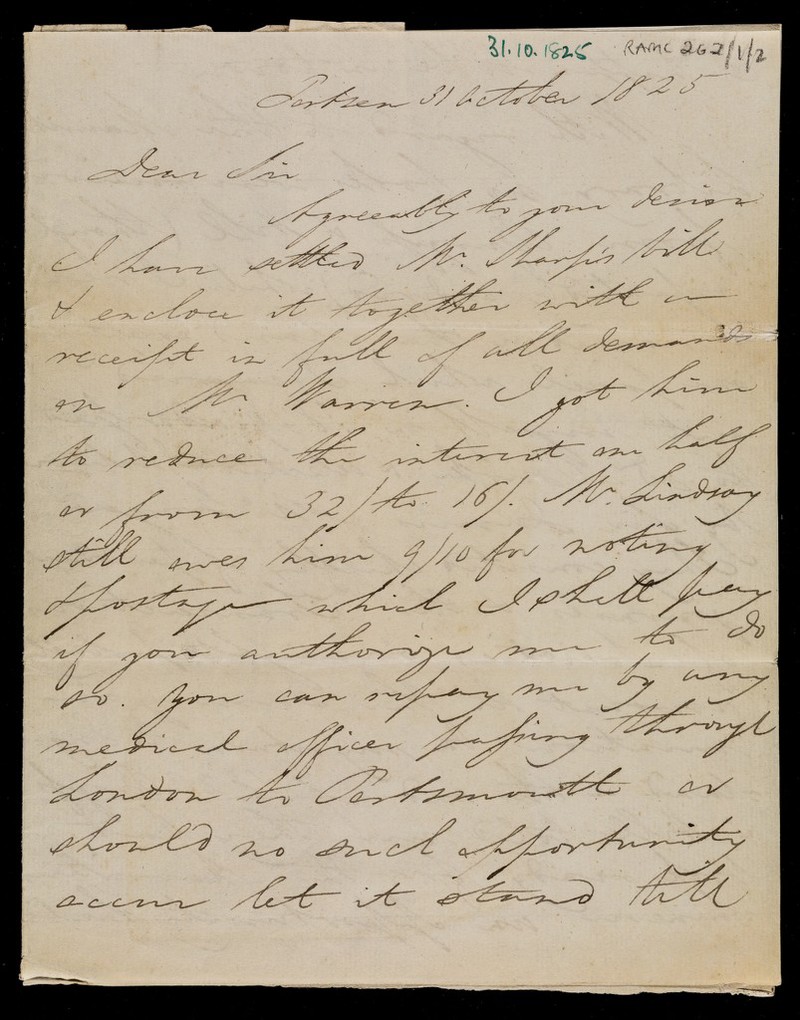 31.10.1825 RAMC 262/1/2
Portsea 31 October 1825
Dear Sir
Agreeably to your desire
I have settled Mr. Sharp's bill
& enclose it together with a
receipt in full of all demands
on Mr. Warren. I got him
to reduce the interest one half
or from 32/ to 16/. Mr. Lindsay
still owes him 9/10 for noting
& postage which I shall pay
if you authorize me to do
so. You can repay me by any
medical officer passing through
London to Portsmouth or
should no such opportunity
occur let it stand till